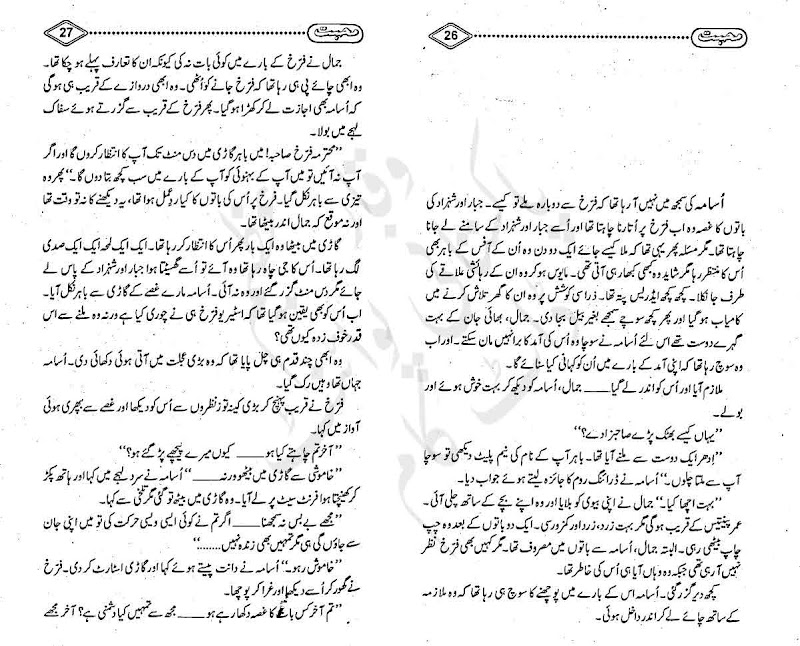 محبت
26
اُسامہ کی سمجھ میں نہیں آ رہا تھا کہ فرّخ سے دوبارہ ملے تو کیسے۔ جبار اور شہزاد کی
باتوں کا غصہ وہ اب فرّخ پر اُتارنا چاہتا تھا اور اُسے جبار اور شہزاد کے سامنے لے جانا
چاہتا تھا۔ مگر مسئلہ پھر یہی تھا کہ ملا کیسے جائے ایک دو دن وہ اُن کے آفس کے باہر بھی
اُس کا منتظر رہا مگر شاید وہ بھی کبھار ہی آتی تھی۔ مایوس ہو کر وہ ان کے رہائشی علاقے کی
طرف جا نکلا۔ کچھ کچھ ایڈریس پتہ تھا۔ ذرا سی کوشش پر وہ ان کا گھر تلاش کرنے میں
کامیاب ہو گیا اور پھر کچھ سوچے سمجھے بغیر بیل بجا دی۔ جمال، بھائی جان کے بہت
گہرے دوست تھے اس لئے اُسامہ نے سوچا وہ اُس کی آمد کا برا نہیں مان سکتے۔ اور اب
وہ سوچ رہا تھا کہ اپنی آمد کے بارے میں اُن کو کہانی کیا سنائے گا۔
ملازم آیا اور اُس کو اندر لے گیا ـــــ جمال، اُسامہ کو دیکھ کر بہت خوش ہوئے اور
بولے۔
’’یہاں کیسے بھٹک پڑے صاحبزادے؟‘‘
’’اِدھر ایک دوست سے ملنے آیا تھا۔ باہر آپ کے نام کی نیم پلیٹ دیکھی تو سوچا
آپ سے ملتا چلوں۔‘‘ اُسامہ نے ڈرائنگ روم کا جائزہ لیتے ہوئے جواب دیا۔
’’بہت اچھا کیا۔‘‘ جمال نے اپنی بیوی کو بلایا اور وہ اپنے بچے کے ساتھ چلی آئی۔
عمر پینتیس کے قریب ہو گی مگر بہت زرد، زرد اور کمزور سی۔ ایک دو باتوں کے بعد وہ چپ
چاپ بیٹھی رہی۔ البتہ جمال، اُسامہ سے باتوں میں مصروف تھا۔ مگر کہیں بھی فرّخ نظر
نہیں آ رہی تھی جبکہ وہ وہاں آیا ہی اُس کی خاطر تھا۔
کچھ دیر گزر گئی۔ اُسامہ اس کے بارے میں پوچھنے کا سوچ ہی رہا تھا کہ وہ ملازمہ
کے ساتھ چائے لے کر اندر داخل ہوئی۔
محبت
27
جمال نے فرّخ کے بارے میں کوئی بات نہ کی کیونکہ ان کا تعارف پہلے ہو چکا تھا۔
وہ ابھی چائے پی ہی رہا تھا کہ فرّخ جانے کو اُٹھی۔ وہ ابھی دروازے کے قریب ہی ہو گی
کہ اُسامہ بھی اجازت لے کر کھڑا ہو گیا۔ پھر فرّخ کے قریب سے گزرتے ہوئے سفاک
لہجے میں بولا۔
’’محترمہ فرّخ صاحبہ! میں باہر گاڑی میں دس منٹ تک آپ کا انتظار کروں گا اور اگر
آپ نہ آئیں تو میں آپ کے بہنوئی کو آپ کے بارے میں سب کچھ بتا دوں گا۔‘‘ پھر وہ
تیزی سے باہر نکل گیا۔ فرخ پر اُس کی باتوں کا کیا ردِعمل ہوا تھا، یہ دیکھنے کا نہ تو وقت تھا
اور نہ موقع کہ جمال اندر بیٹھا تھا۔
گاڑی میں بیٹھا وہ ایک بار پھر اُس کا انتظار کر رہا تھا۔ ایک ایک لمحہ ایک ایک صدی
لگ رہا تھا۔ اُس کا جی چاہ رہا تھا وہ آئے تو اُسے گھسیٹتا ہوا جبار اور شہزاد کے پاس لے
جائے مگر دس منٹ گزر گئے اور وہ نہ آئی۔ اُسامہ مارے غصے کے گاڑی سے باہر نکل آیا۔
اب اُس کو بھی یقین ہو گیا تھا کہ اسٹیریو فرّخ ہی نے چوری کیا ہے ورنہ وہ ملنے سے اس
قدر خوف زدہ کیوں تھی؟
وہ ابھی چند قدم ہی چل پایا تھا کہ وہ بڑی عجلت میں آتی ہوئی دکھائی دی۔ اُسامہ
جہاں تھا وہیں رک گیا۔
فرّخ نے قریب پہنچ کر بڑی کینہ توز نظروں سے اُس کو دیکھا اور غصے سے بھری ہوئی
آواز میں کہا۔
’’آخر تم چاہتے کیا ہو ـــــ کیوں میرے پیچھے پڑ گئے ہو؟‘‘
’’خاموشی سے گاڑی میں بیٹھو ورنہ ـــــ‘‘ اُسامہ نے سرد لہجے میں کہا اور ہاتھ پکڑ
کر کھینچتا ہوا فرنٹ سیٹ پر لے آیا۔ وہ گاڑی میں بیٹھ تو گئی مگر تلخی سے کہا۔
’’مجھے بے بس نہ سمجھنا ـــــ اگر تم نے کوئی ایسی ویسی حرکت کی تو میں اپنی جان
سے جاؤں گی ہی مگر تمہیں بھی زندہ نہیں........‘‘
’’خاموش رہو۔‘‘ اُسامہ نے دانت پیستے ہوئے کہا اور گاڑی اسٹارٹ کر دی۔ فرّخ
نے گھور کر اُسے دیکھا اور غرا کر پوچھا۔
’’تم آخر کس بات کا غصہ دکھا رہے ہو ـــــ مجھ سے تمہیں کیا دشمنی ہے؟ آخر مجھے